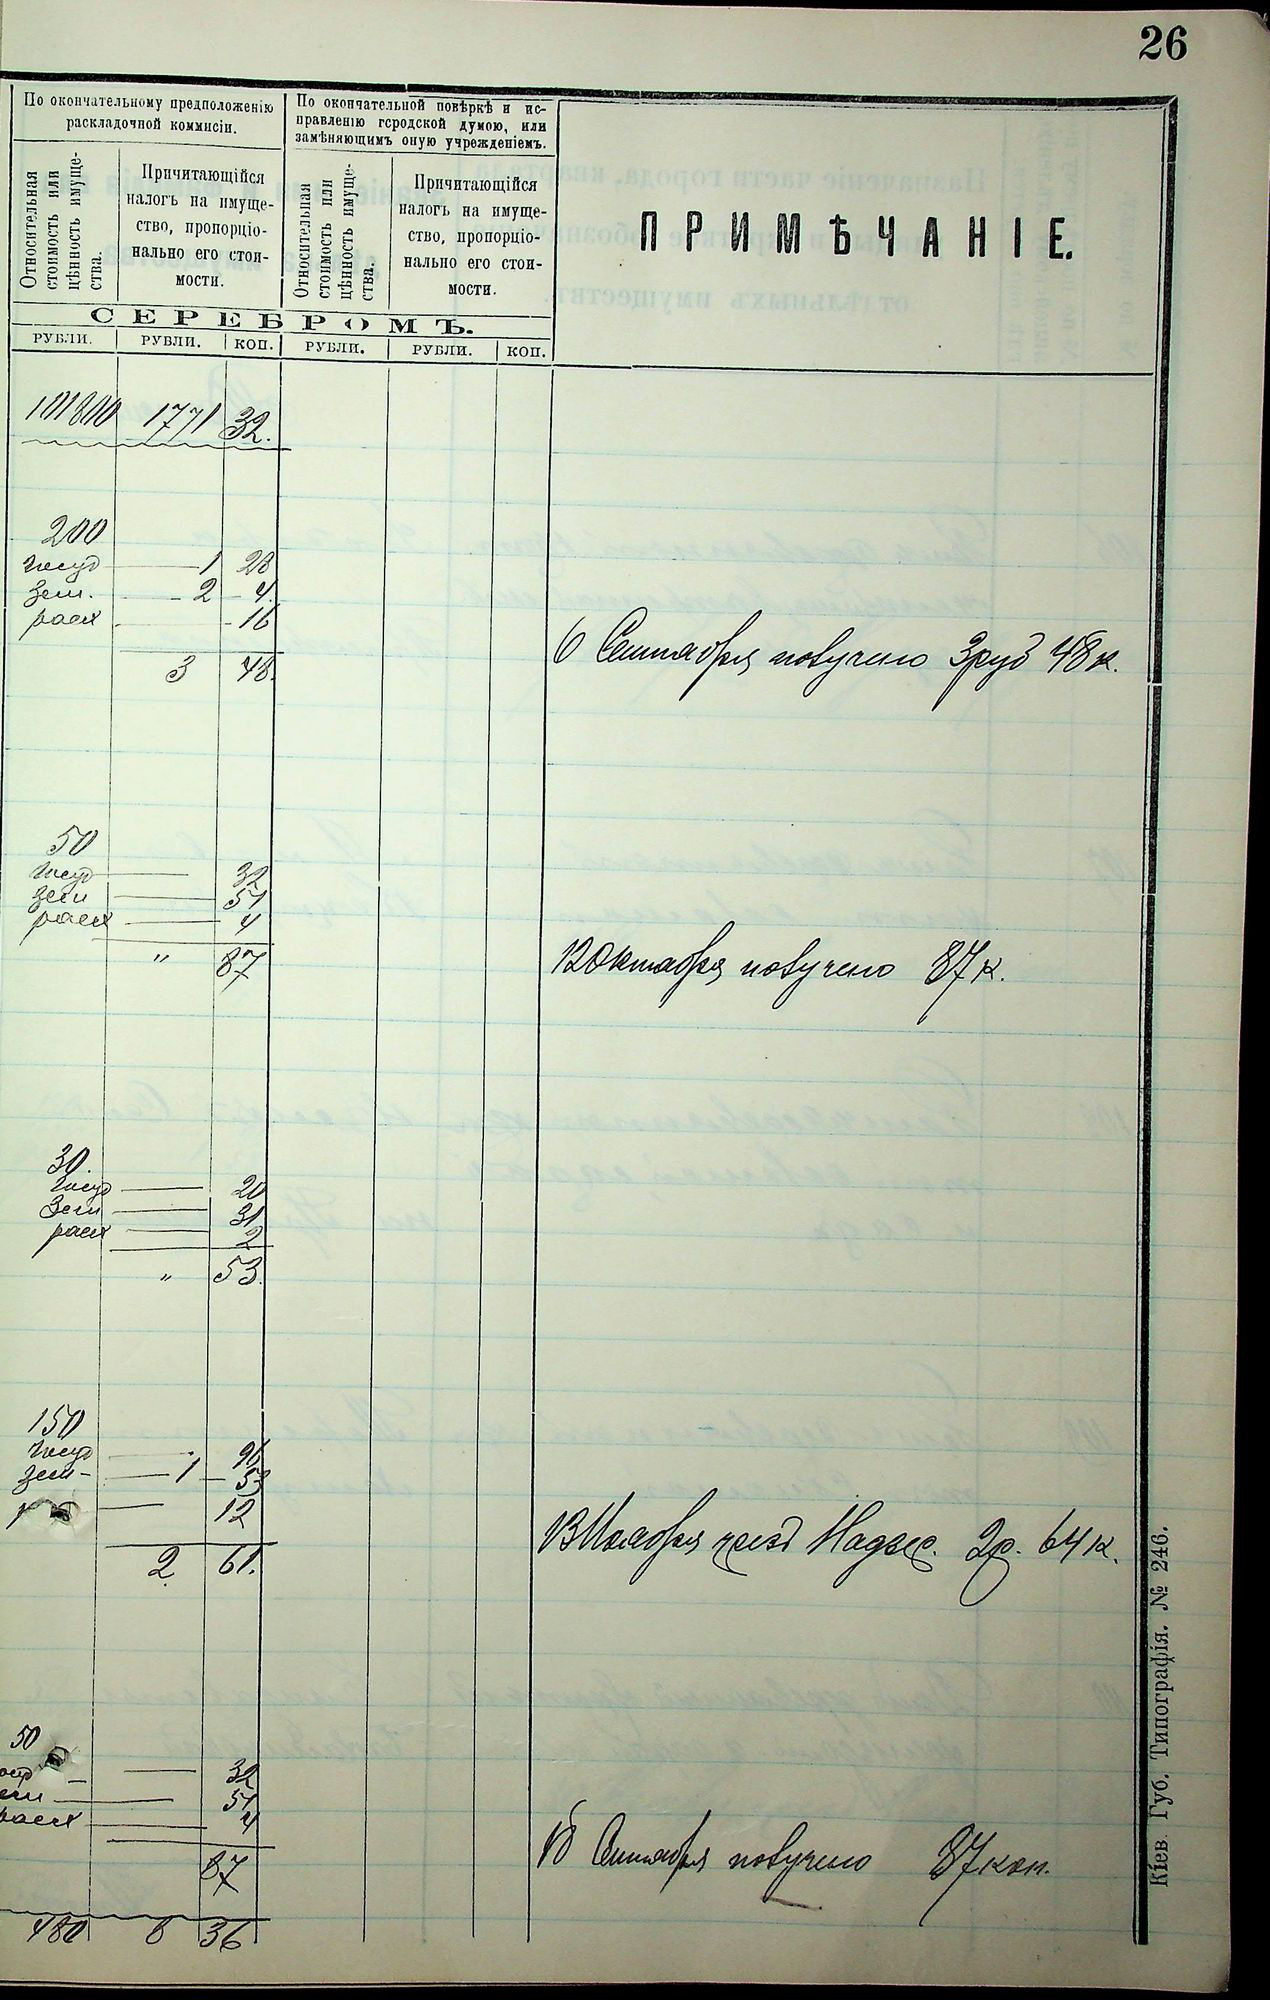 26
По окончательному предположенію
раскладочной коммисіи.
По окончательной повѣркѣ и ис-
правленію городской думою, или
замѣняющимъ оную учрежденіемъ.
Относительная
стоимость или
цѣнность имуще-
ства.
Причитающійся
налогъ на имуще-
ство, пропорціо-
нально его стои-
мости.
Относительная
стоимость или
цѣнность имуще-
ства.
Причитающійся
налогъ на имуще-
ство, пропорціо-
нально его стои-
мости.
ПРИМѢЧАНІЕ.
СЕРЕБРОМЪ.
РУБЛИ. РУБЛИ. КОП. РУБЛИ. РУБЛИ. КОП.
101800 1771 32.
200
госуд 1 28
зем. 2 4
расх 16
3 48.
6 Сентября получено 3 руб 48 к.
50
госуд 32
зем 51
расх 4
" 87
12 Октября получено 87 к.
30.
госуд 20
зем 31
расх 2
" 53.
150
госуд 96
зем 1 53
12
2 61.
13 Ноября чрезъ Надзир. 2 р. 64 к.
50
32
51
расх 4
87
Сентября получено 87 коп.
480 8 36
Кіев. Губ. Типографія. № 246.